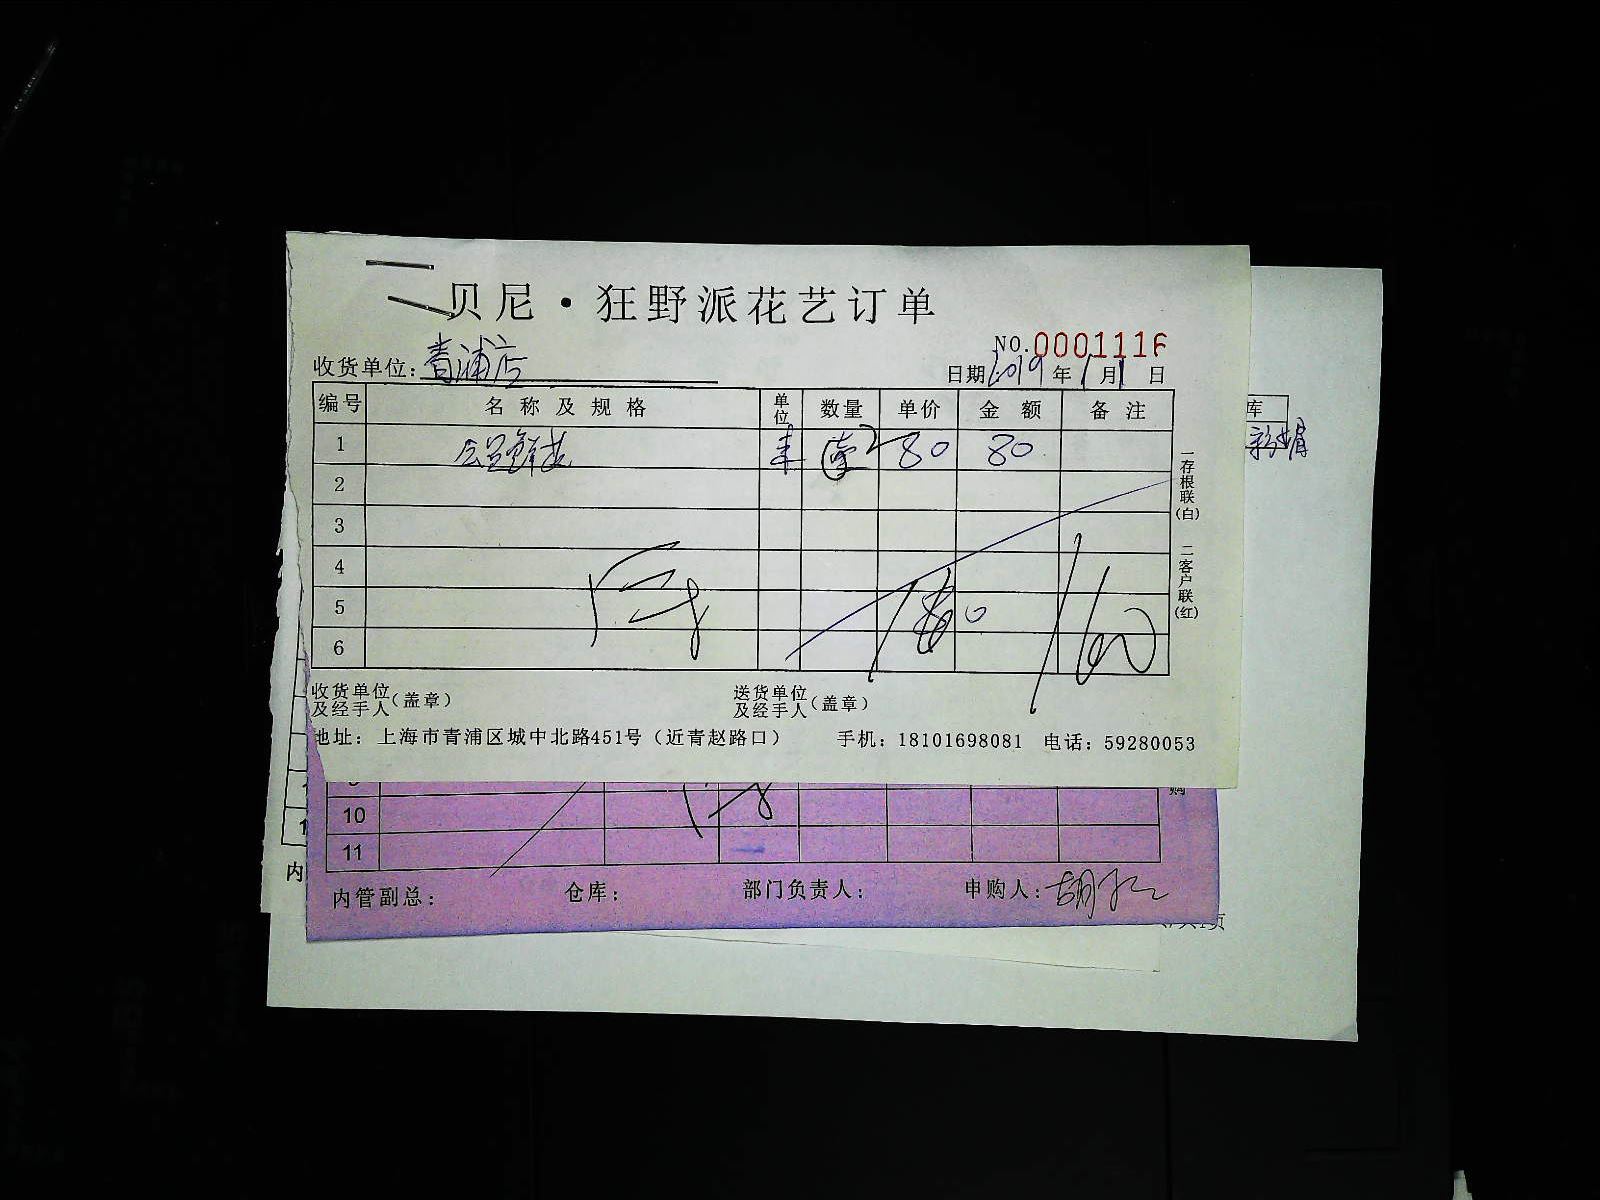 贝尼·狂野派花艺订单
NO.0001116
收货单位:青浦店
日期2019年1月1日
编号 名称及规格 单位 数量 单价 金额 备注
1 会员鲜花 束 2 80 80
2
3
4
5
6
160
一存根联(白) 二客户联(红)
收货单位及经手人(盖章) 送货单位及经手人(盖章)
地址：上海市青浦区城中北路451号（近青赵路口） 手机：18101698081 电话：59280053
库
10
11
内管副总： 仓库： 部门负责人： 申购人：
内
页